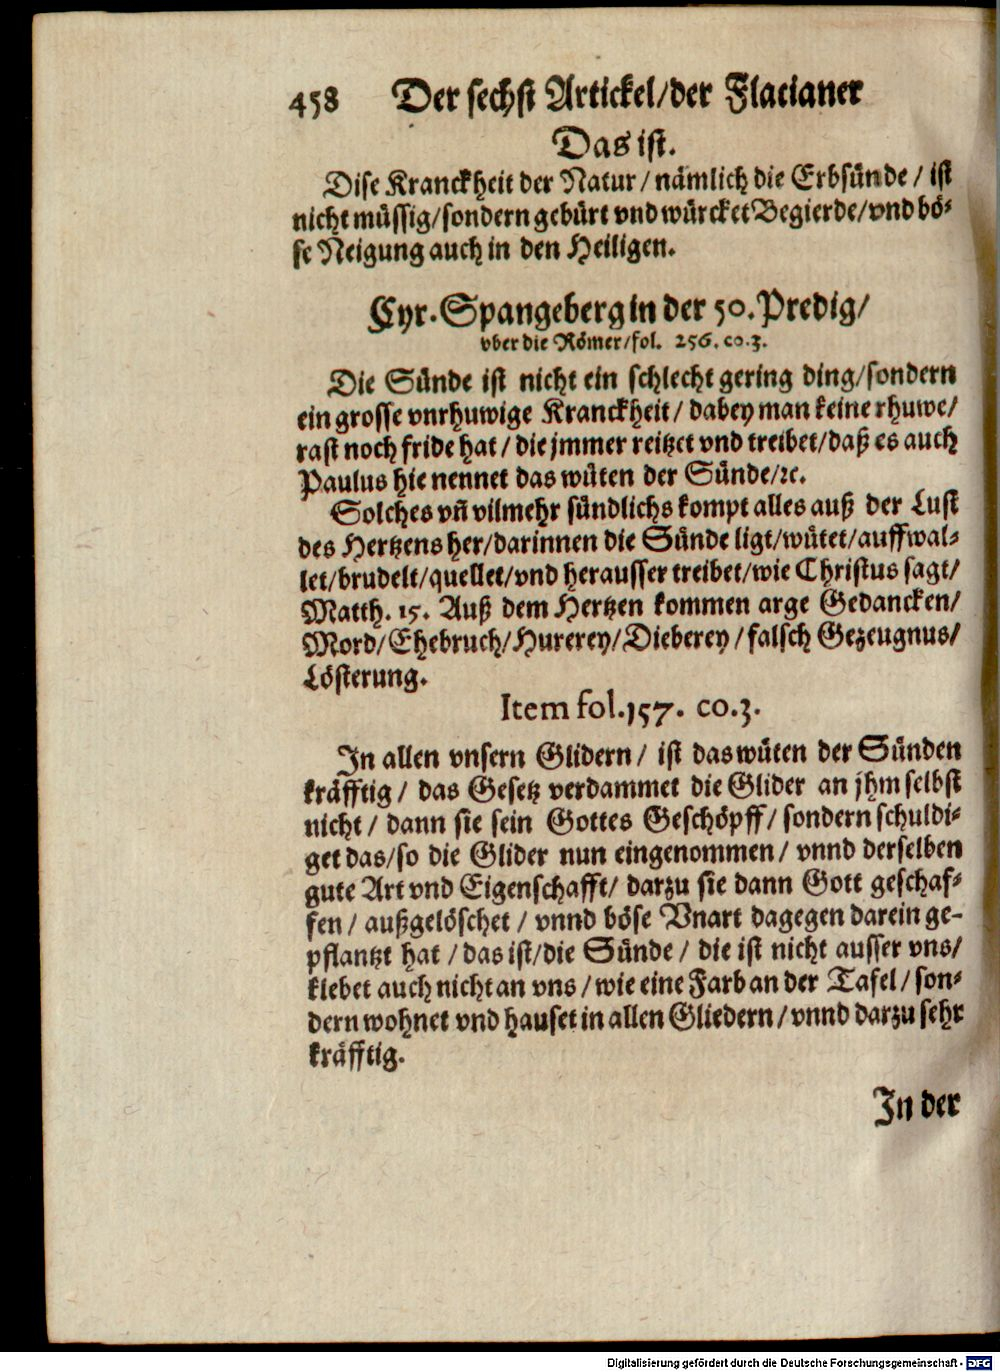 458 Der sechst Artickel/der Flacianer
Das ist.
Dise Kranckheit der Natur / nämlich die Erbsünde / ist
nicht müssig/sondern gebürt vnd würcket Begierde/vnd bö-
se Neigung auch in den Heiligen.
Cyr. Spangeberg in der 50. Predig/
vber die Römer/fol. 256. co.3.
Die Sünde ist nicht ein schlecht gering ding/sondern
ein grosse vnrhuwige Kranckheit / dabey man keine rhuwe/
rast noch fride hat / die jmmer reitzet vnd treibet/daß es auch
Paulus hie nennet das wüten der Sünde/ꝛc.
Solches vñ vilmehr sündlichs kompt alles auß der Lust
des Hertzens her/darinnen die Sünde ligt/wütet/auffwal-
let/brudelt/quellet/vnd herausser treibet/wie Christus sagt/
Matth. 15. Auß dem Hertzen kommen arge Gedancken/
Mord/Ehebruch/Hurerey/Dieberey / falsch Gezeugnus/
Lösterung.
Item fol.157. co.3.
In allen vnsern Glidern / ist das wüten der Sünden
kräfftig / das Gesetz verdammet die Glider an jhm selbst
nicht / dann sie sein Gottes Geschöpff / sondern schuldi-
get das/so die Glider nun eingenommen / vnnd derselben
gute Art vnd Eigenschafft/ darzu sie dann Gott geschaf-
fen / außgelöschet / vnnd böse Vnart dagegen darein ge-
pflantzt hat / das ist/die Sünde / die ist nicht ausser vns/
klebet auch nicht an vns / wie eine Farb an der Tafel / son-
dern wohnet vnd hauset in allen Gliedern / vnnd darzu sehr
kräfftig.
In der
Digitalisierung gefördert durch die Deutsche Forschungsgemeinschaft - DFG